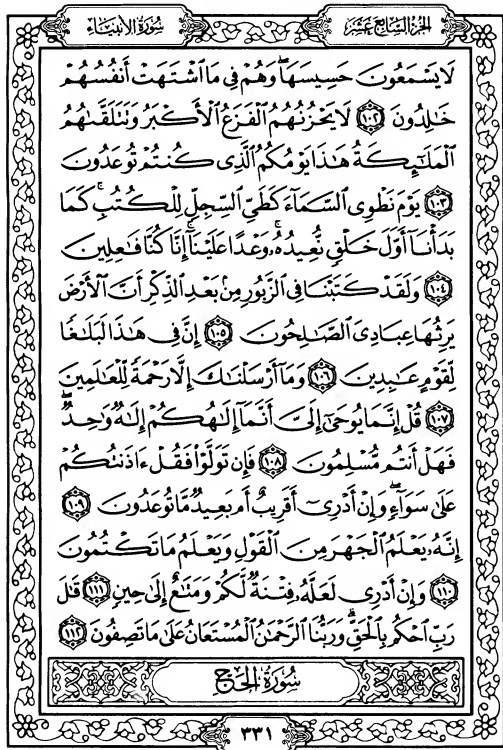 الجزء السابع عشر
سورة الأنبياء
لَا يَسْمَعُونَ حَسِيسَهَا ۖ وَهُمْ فِى مَا ٱشْتَهَتْ أَنفُسُهُمْ
خَٰلِدُونَ ١٠٢ لَا يَحْزُنُهُمُ ٱلْفَزَعُ ٱلْأَكْبَرُ وَتَتَلَقَّىٰهُمُ
ٱلْمَلَٰٓئِكَةُ هَٰذَا يَوْمُكُمُ ٱلَّذِى كُنتُمْ تُوعَدُونَ
١٠٣ يَوْمَ نَطْوِى ٱلسَّمَآءَ كَطَىِّ ٱلسِّجِلِّ لِلْكُتُبِ ۚ كَمَا
بَدَأْنَآ أَوَّلَ خَلْقٍ نُّعِيدُهُۥ ۚ وَعْدًا عَلَيْنَآ ۚ إِنَّا كُنَّا فَٰعِلِينَ
١٠٤ وَلَقَدْ كَتَبْنَا فِى ٱلزَّبُورِ مِنۢ بَعْدِ ٱلذِّكْرِ أَنَّ ٱلْأَرْضَ
يَرِثُهَا عِبَادِىَ ٱلصَّٰلِحُونَ ١٠٥ إِنَّ فِى هَٰذَا لَبَلَٰغًا
لِّقَوْمٍ عَٰبِدِينَ ١٠٦ وَمَآ أَرْسَلْنَٰكَ إِلَّا رَحْمَةً لِّلْعَٰلَمِينَ
١٠٧ قُلْ إِنَّمَا يُوحَىٰٓ إِلَىَّ أَنَّمَآ إِلَٰهُكُمْ إِلَٰهٌ وَٰحِدٌ ۖ
فَهَلْ أَنتُم مُّسْلِمُونَ ١٠٨ فَإِن تَوَلَّوْا۟ فَقُلْ ءَاذَنتُكُمْ
عَلَىٰ سَوَآءٍ ۖ وَإِنْ أَدْرِىٓ أَقَرِيبٌ أَم بَعِيدٌ مَّا تُوعَدُونَ ١٠٩
إِنَّهُۥ يَعْلَمُ ٱلْجَهْرَ مِنَ ٱلْقَوْلِ وَيَعْلَمُ مَا تَكْتُمُونَ
١١٠ وَإِنْ أَدْرِى لَعَلَّهُۥ فِتْنَةٌ لَّكُمْ وَمَتَٰعٌ إِلَىٰ حِينٍ ١١١ قَٰلَ
رَبِّ ٱحْكُم بِٱلْحَقِّ ۗ وَرَبُّنَا ٱلرَّحْمَٰنُ ٱلْمُسْتَعَانُ عَلَىٰ مَا تَصِفُونَ ١١٢
سُورَةُ الحَجِّ
٣٣١